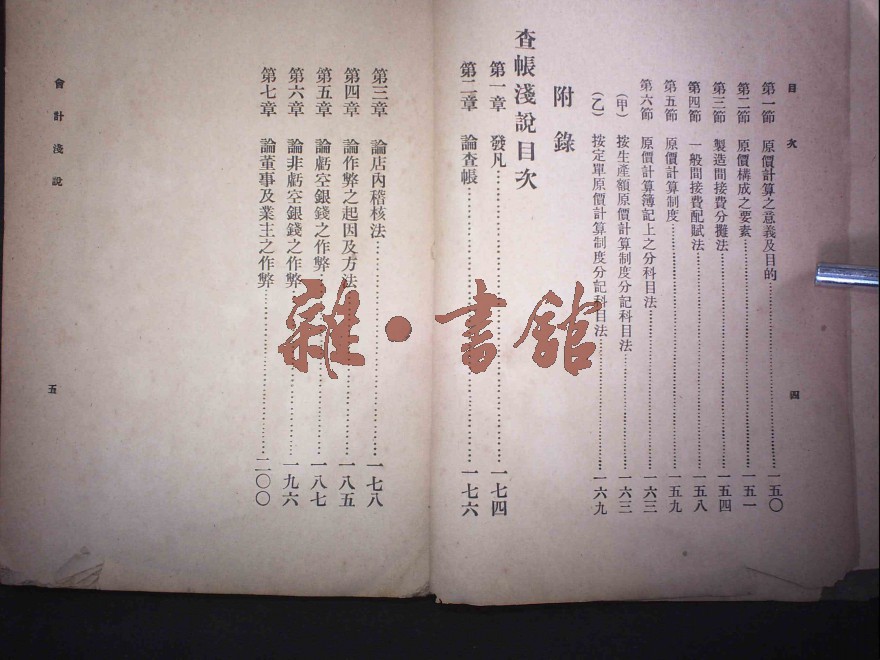 目次
四
第一節 原價計算之意義及目的…………一五〇
第二節 原價構成之要素…………一五一
第三節 製造間接費分攤法…………一五四
第四節 一般間接費配賦法…………一五八
第五節 原價計算制度…………一五九
第六節 原價計算簿記上之分科目法…………一六三
(甲) 按生產額原價計算制度分記科目法…………一六三
(乙) 按定單原價計算制度分記科目法…………一六九
附錄
查帳淺說目次
第一章 發凡…………一七四
第二章 論查帳…………一七六
第三章 論店內稽核法…………一七八
第四章 論作弊之起因及方法…………一八五
第五章 論虧空銀錢之作弊…………一八七
第六章 論非虧空銀錢之作弊…………一九六
第七章 論董事及業主之作弊…………二〇〇
會計淺說
五
雜·書舘